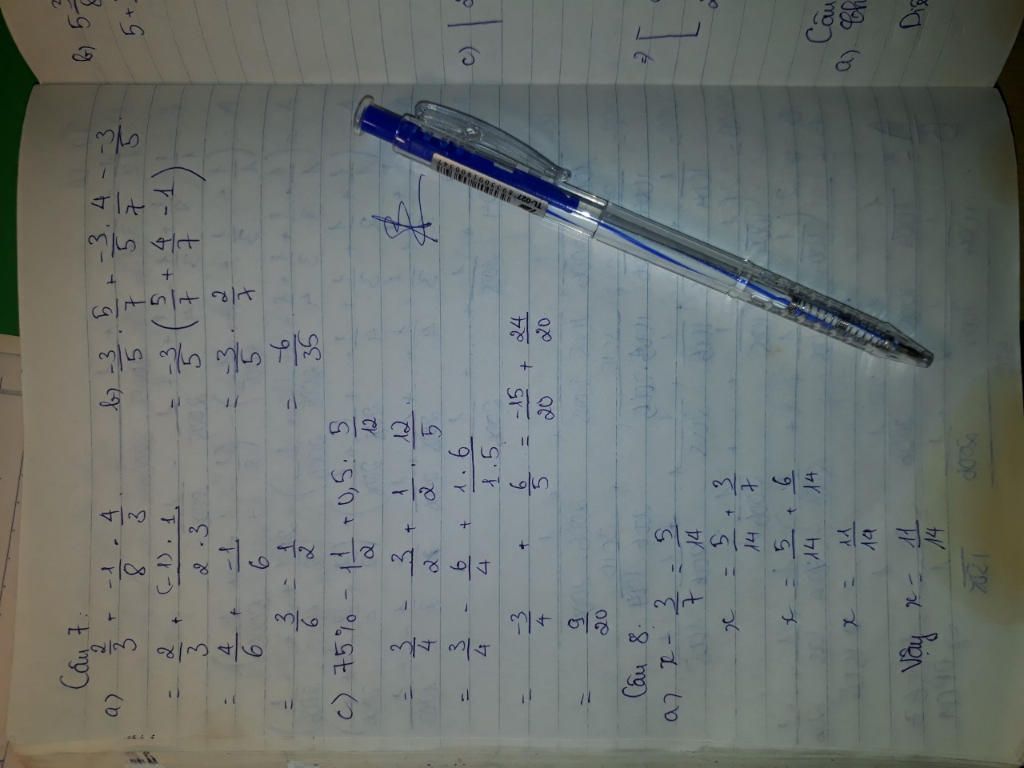 Câu 7:
a) 2/3 + -1/8 . 4/3
= 2/3 + (-1).1/2.3
= 4/6 + -1/6
= 3/6 = 1/2
b) -3/5 . 5/7 + -3/5 . 4/7 - -3/5
= -3/5 (5/7 + 4/7 - 1)
= -3/5 . 2/7
= -6/35
c) 75% - 1 1/2 + 0,5 : 5/12
= 3/4 - 3/2 + 1/2 . 12/5
= 3/4 - 6/4 + 1.6/1.5
= -3/4 + 6/5 = -15/20 + 24/20
= 9/20
Câu 8:
a) x - 3/7 = 5/14
x = 5/14 + 3/7
x = 5/14 + 6/14
x = 11/14
Vậy x = 11/14
b) 5
5+
c)
=>
Câu
a)
TL-027